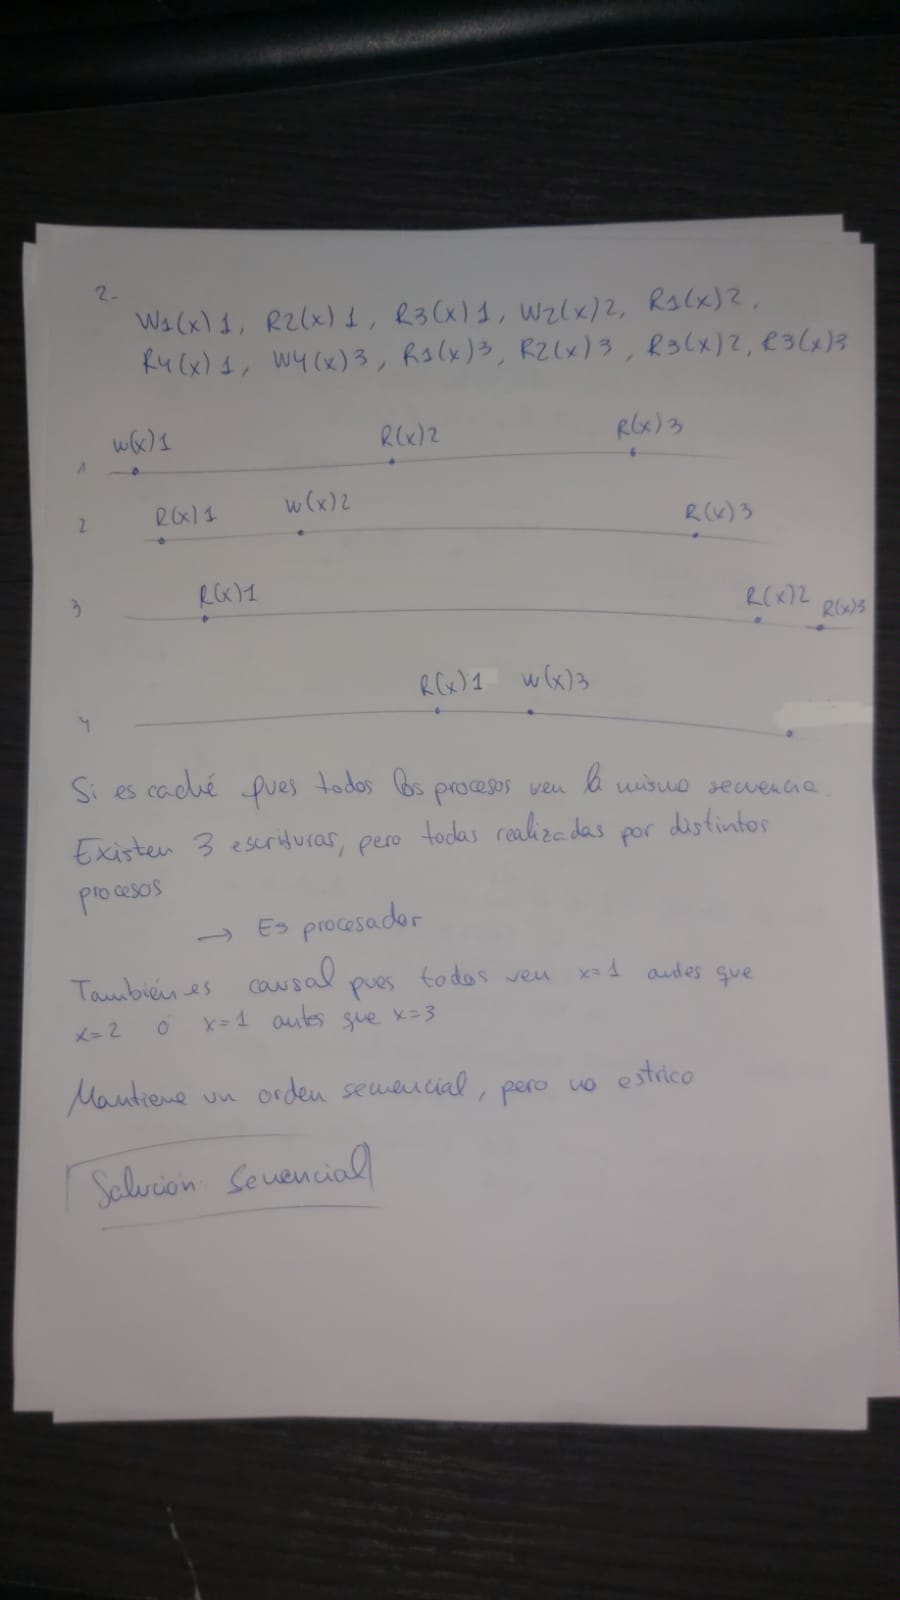 2-
W1(x)1, R2(x)1, R3(x)1, W2(x)2, R1(x)2,
R4(x)1, W4(x)3, R1(x)3, R2(x)3, R3(x)2, R3(x)3
W(x)1 R(x)2 R(x)3
1
R(x)1 W(x)2 R(x)3
2
R(x)1 R(x)2 R(x)3
3
R(x)1 W(x)3
4
Si es caché pues todos los procesos ven la misma secuencia.
Existen 3 escrituras, pero todas realizadas por distintos
procesos
→ Es procesador
También es causal pues todas ven x=1 antes que
x=2 ó x=1 antes que x=3
Mantiene un orden secuencial, pero no estrico
Solución: Secuencial